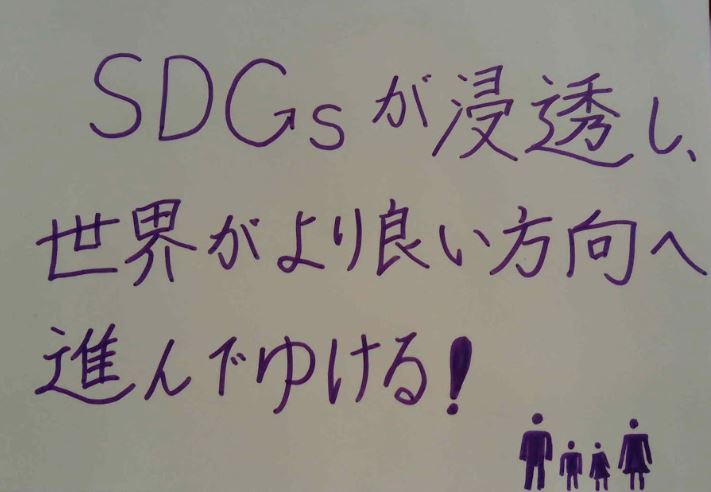 SDGsが浸透し、
世界がより良い方向へ
進んでゆける!